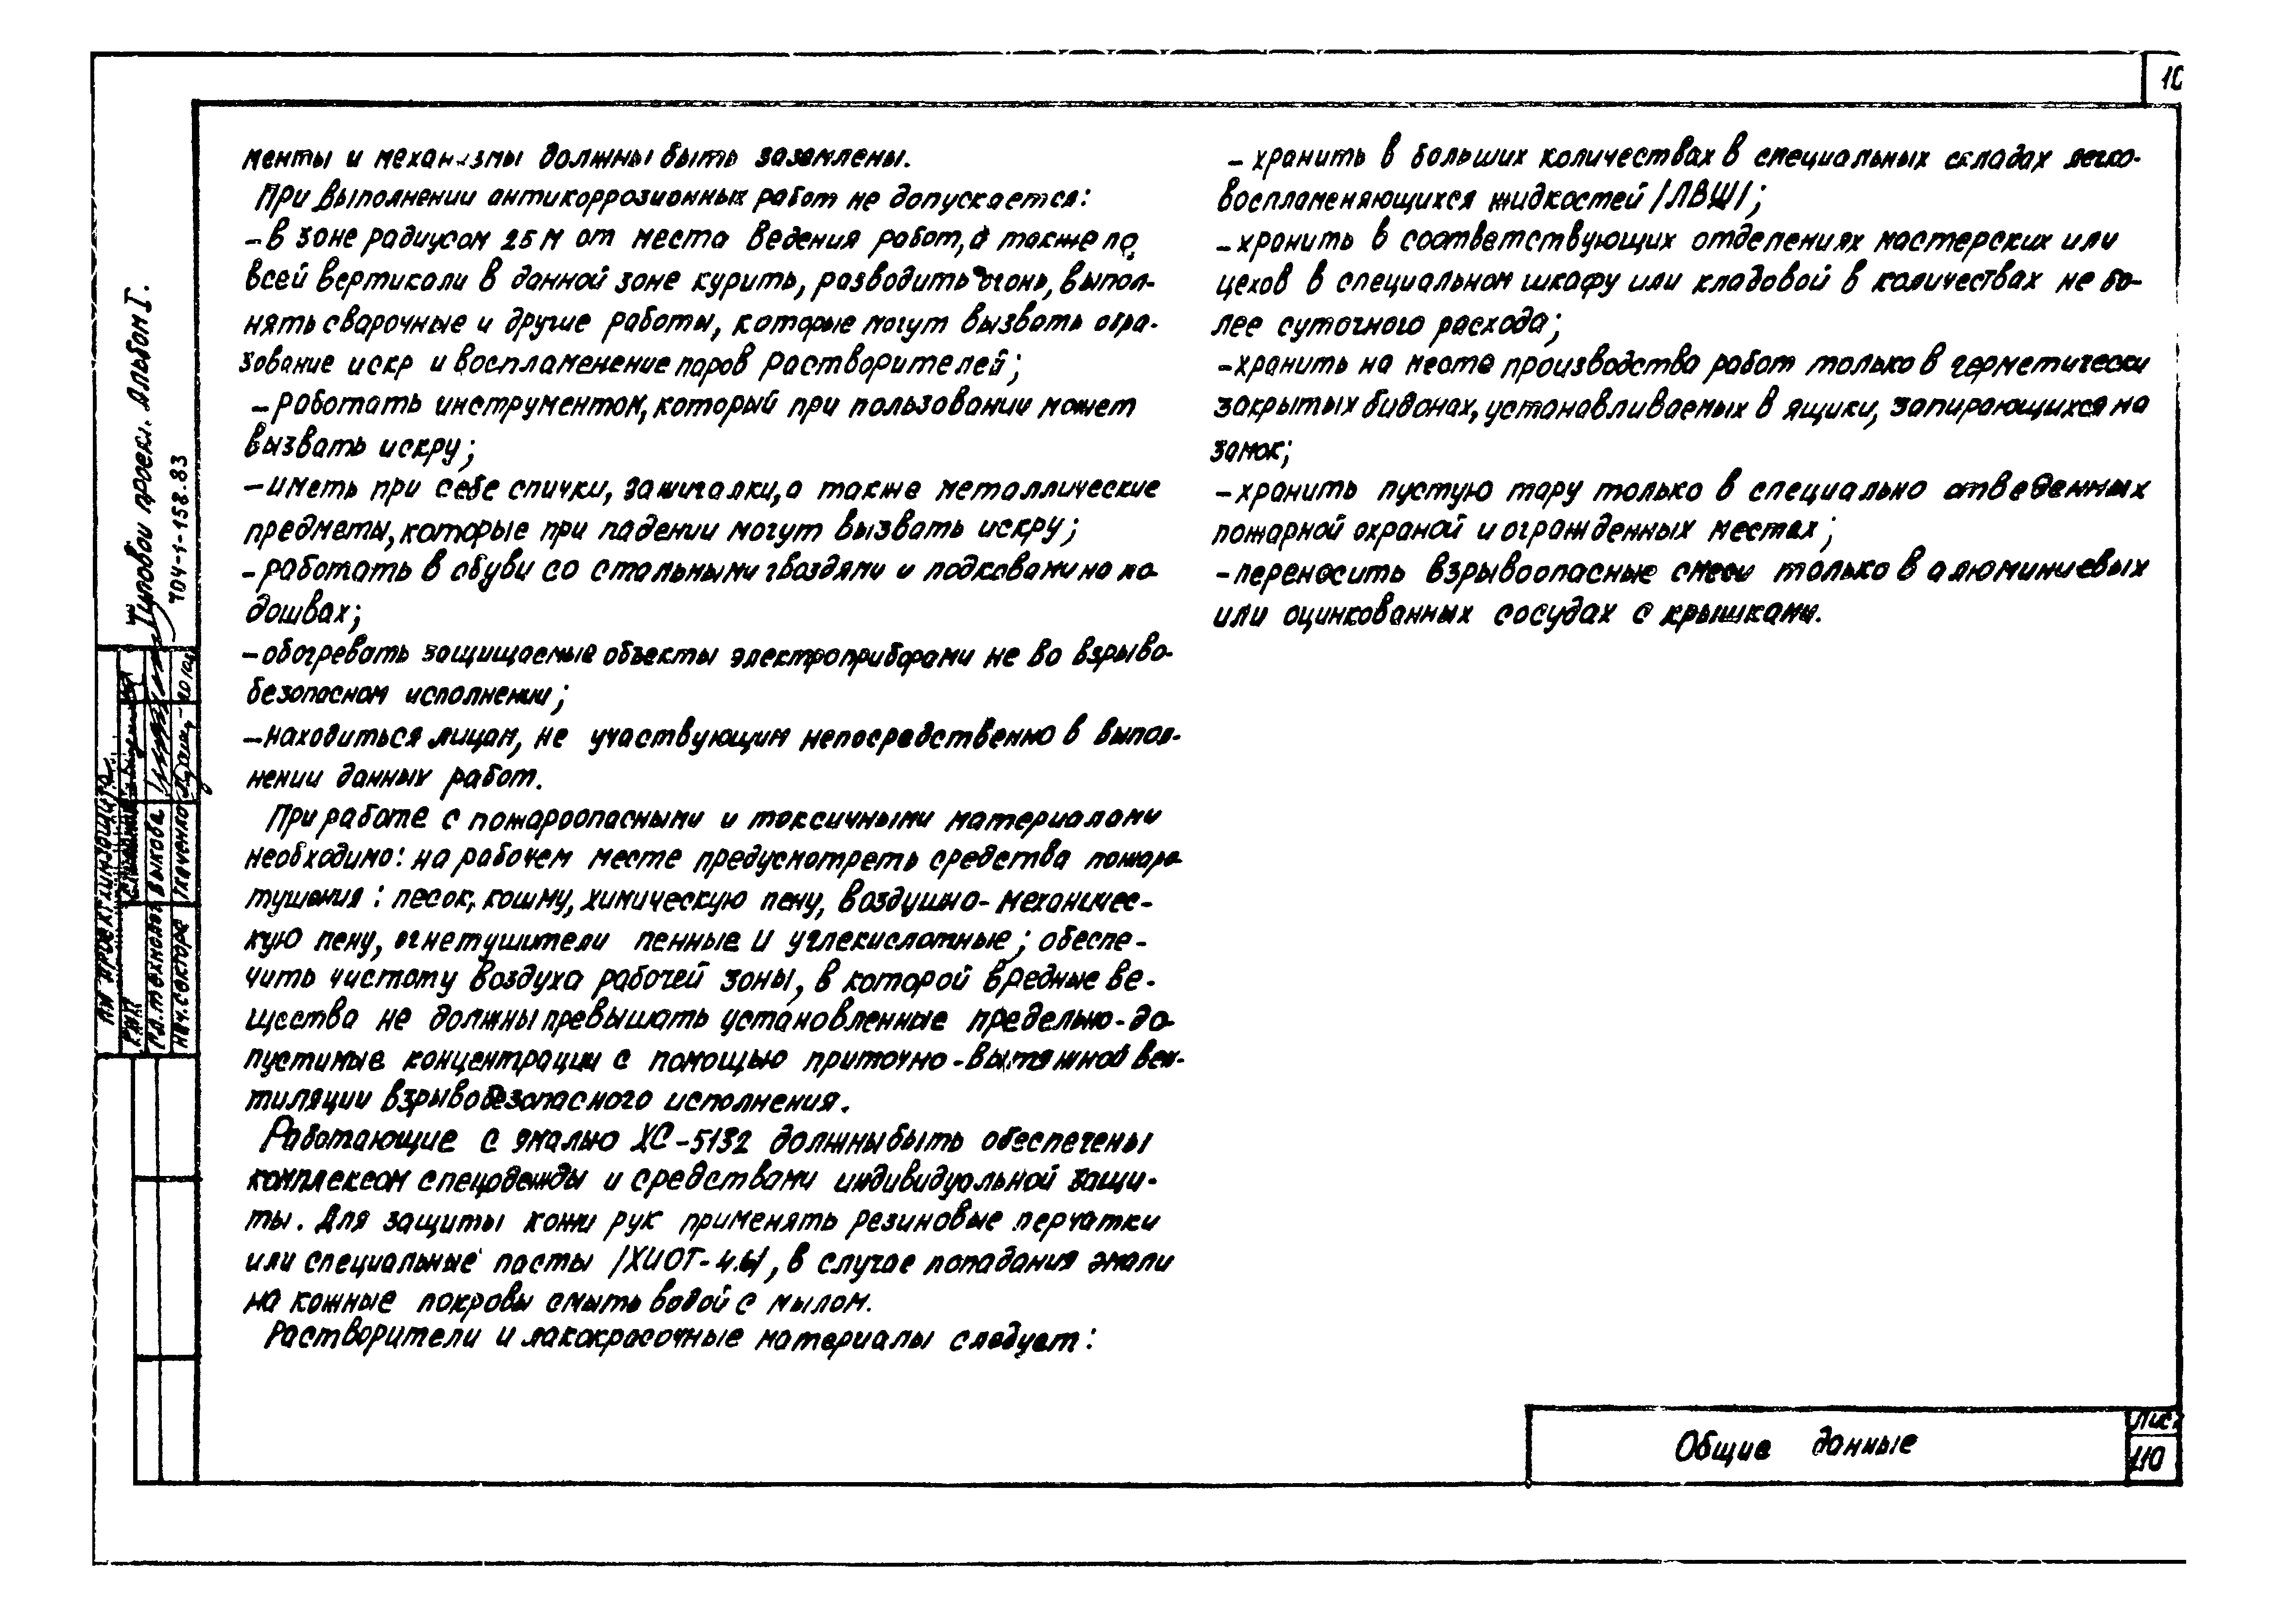 10
менты и механизмы должны быть заземлены.
При выполнении антикоррозионных работ не допускается:
- в зоне радиусом 25 м от места ведения работ, а также по
всей вертикали в данной зоне курить, разводить огонь, выпол-
нять сварочные и другие работы, которые могут вызвать обра-
зование искр и воспламенение паров растворителей;
- работать инструментом, который при пользовании может
вызвать искру;
- иметь при себе спички, зажигалки, а также металлические
предметы, которые при падении могут вызвать искру;
- работать в обуви со стальными гвоздями и подковами на по-
дошвах;
- обогревать защищаемые объекты электроприборами не во взрыво-
безопасном исполнении;
- находиться лицам, не участвующим непосредственно в выпол-
нении данных работ.
При работе с пожароопасными и токсичными материалами
необходимо: на рабочем месте предусмотреть средства пожаро
тушения: песок, кошму, химическую пену, воздушно-механичес-
кую пену, огнетушители пенные и углекислотные; обеспе-
чить чистоту воздуха рабочей зоны, в которой вредные ве-
щества не должны превышать установленные предельно-до-
пустимые концентрации с помощью приточно-вытяжной вен-
тиляции взрывобезопасного исполнения.
Работающие с эмалью ХС-5132 должны быть обеспечены
комплексом спецодежды и средствами индивидуальной защи-
ты. Для защиты кожи рук применять резиновые перчатки
или специальные пасты /ХИОТ-4.6/, в случае попадания эмали
на кожные покровы смыть водой с мылом.
Растворители и лакокрасочные материалы следует:
- хранить в больших количествах в специальных складах легко-
воспламеняющихся жидкостей /ЛВЖ/;
- хранить в соответствующих отделениях мастерских или
цехов в специальном шкафу или кладовой в количествах не бо-
лее суточного расхода;
- хранить на месте производства работ только в герметически
закрытых бидонах, устанавливаемых в ящики, запирающихся на
замок;
- хранить пустую тару только в специально отведенных
пожарной охраной и огражденных местах;
- переносить взрывоопасные смеси только в алюминиевых
или оцинкованных сосудах с крышками.
Типовой проект. Альбом I.
704-1-158.83
ПИ Проектхимзащита
ГИП
Гл. технолог Быкова
Нач. сектора Ткаченко
Общие данные
Лист
40